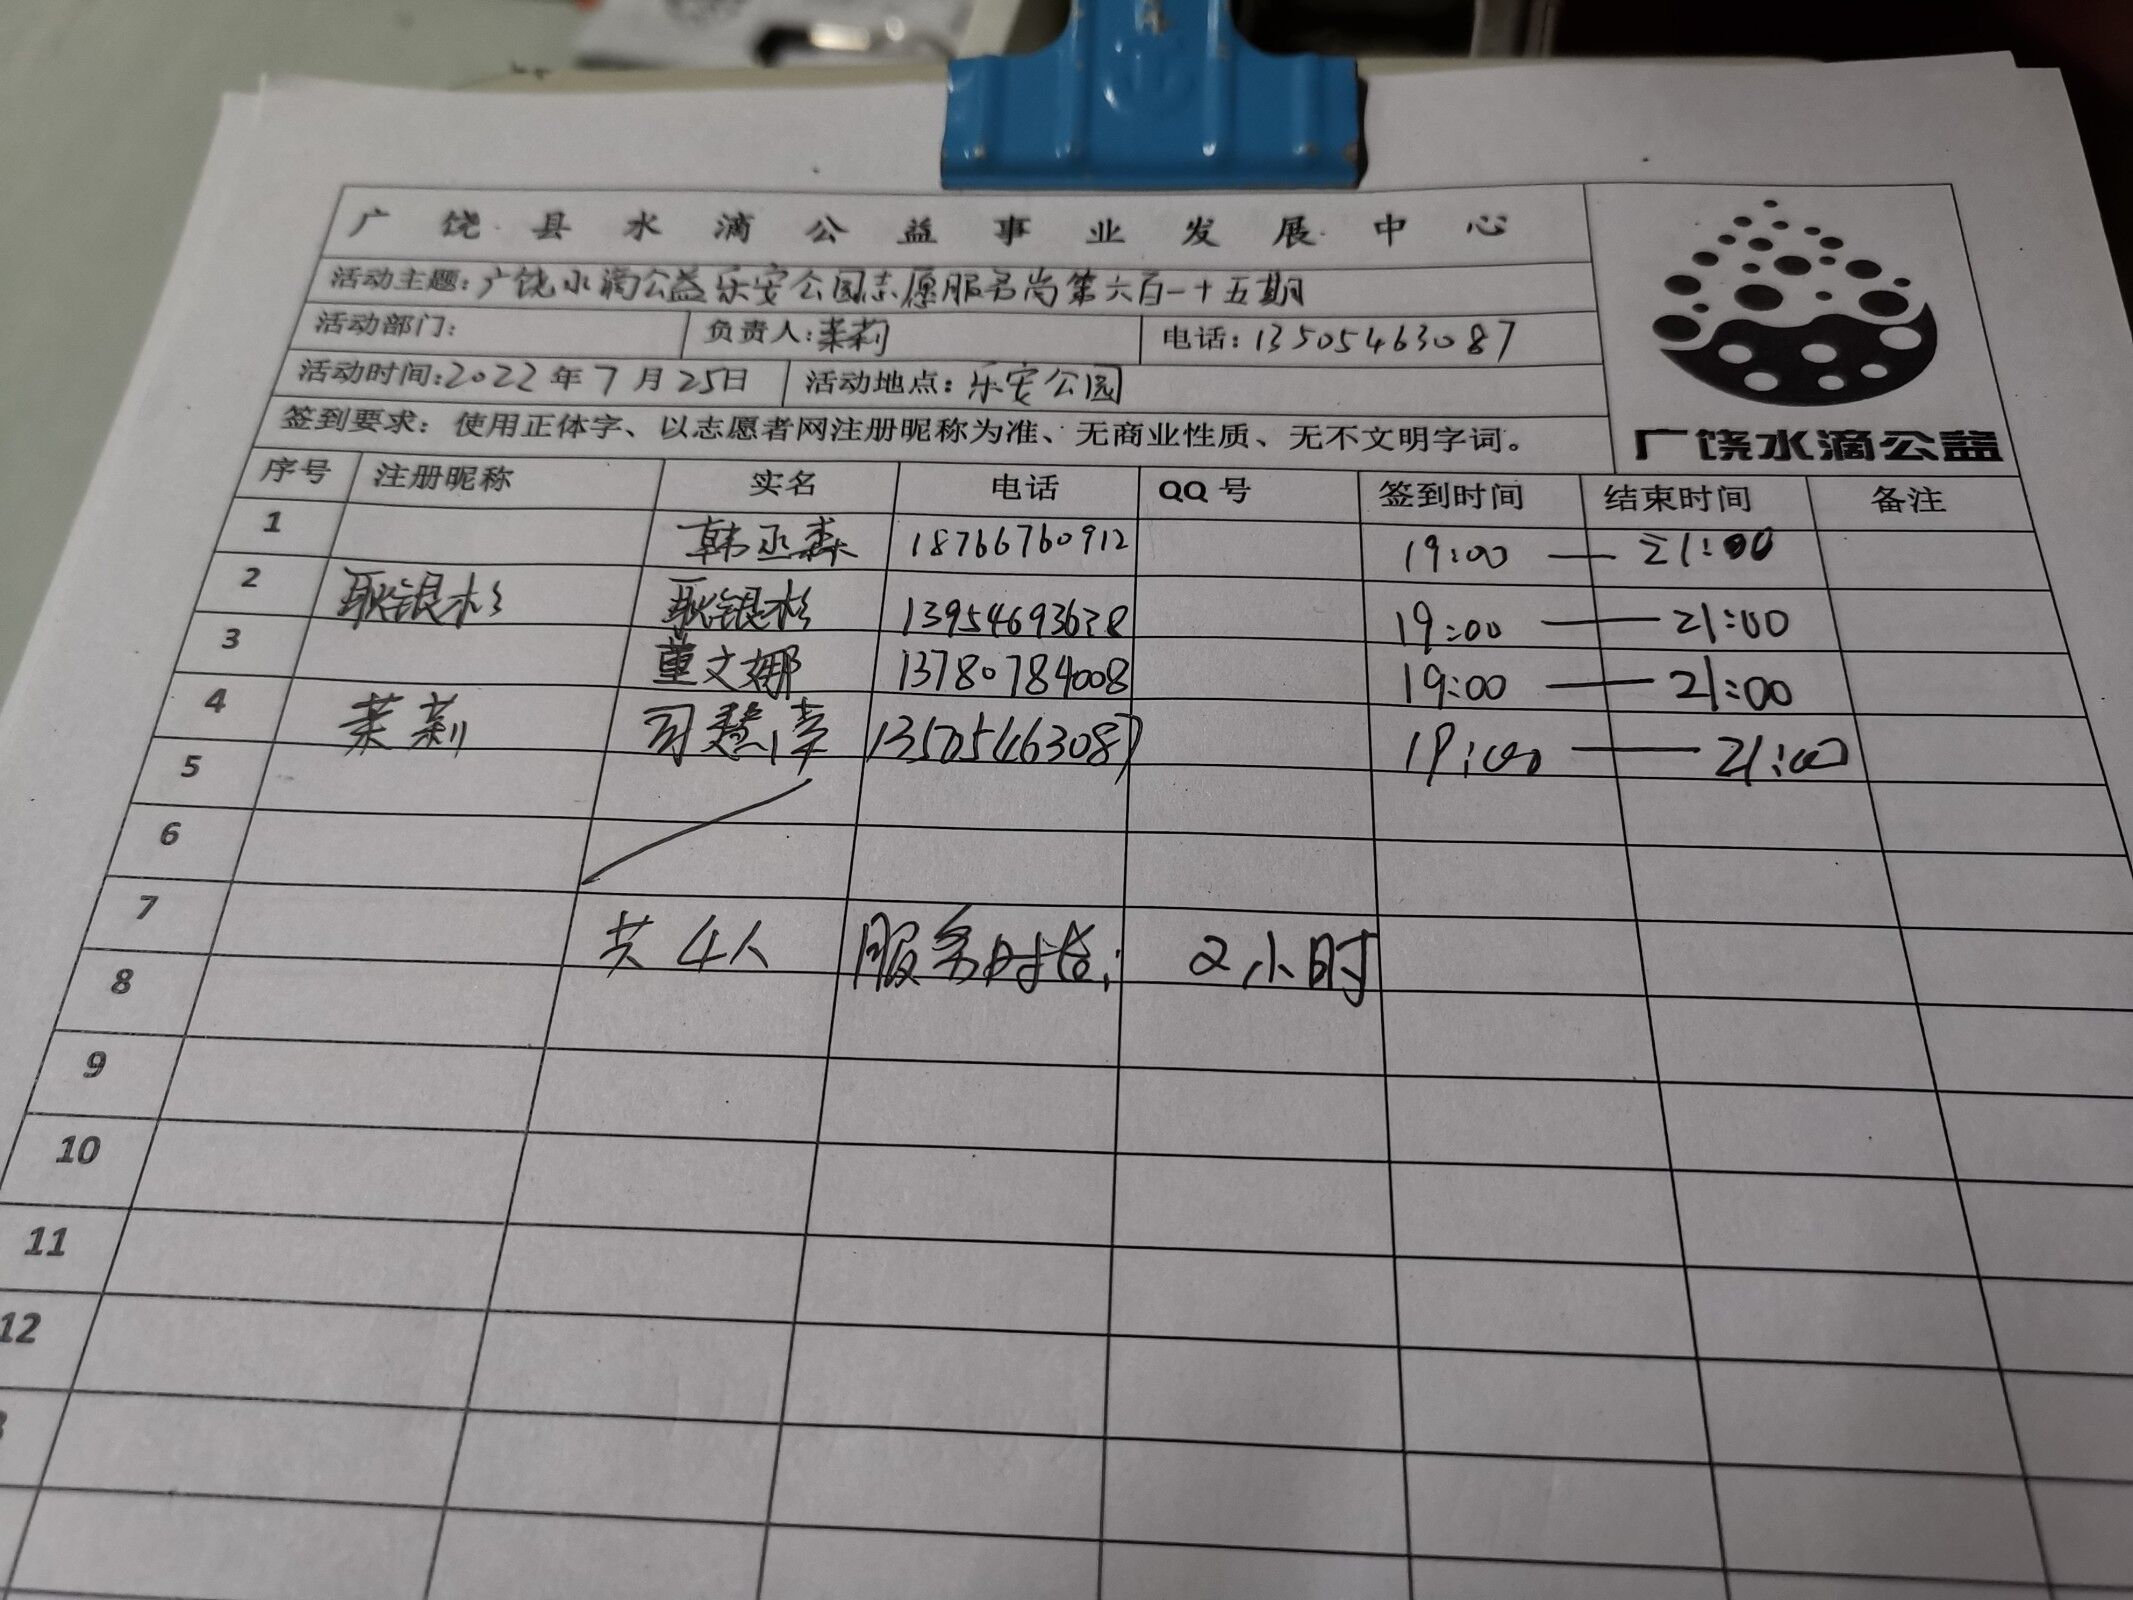 广饶县水滴公益事业发展中心
活动主题：广饶水滴公益乐安公园志愿服务岗第六百一十五期
活动部门： 负责人：茉莉 电话：13505463087
活动时间：2022年7月25日 活动地点：乐安公园
签到要求：使用正体字、以志愿者网注册昵称为准、无商业性质、无不文明字词。
广饶水滴公益
序号 注册昵称 实名 电话 QQ号 签到时间 结束时间 备注
1 韩丞森 18766760912 19:00 — 21:00
2 耿银杉 耿银杉 13954693628 19:00 — 21:00
3 董文娜 13780784008 19:00 — 21:00
4 茉莉 司慧 13505463087 19:00 — 21:00
5
6
7 共4人 服务时长: 2小时
8
9
10
11
12